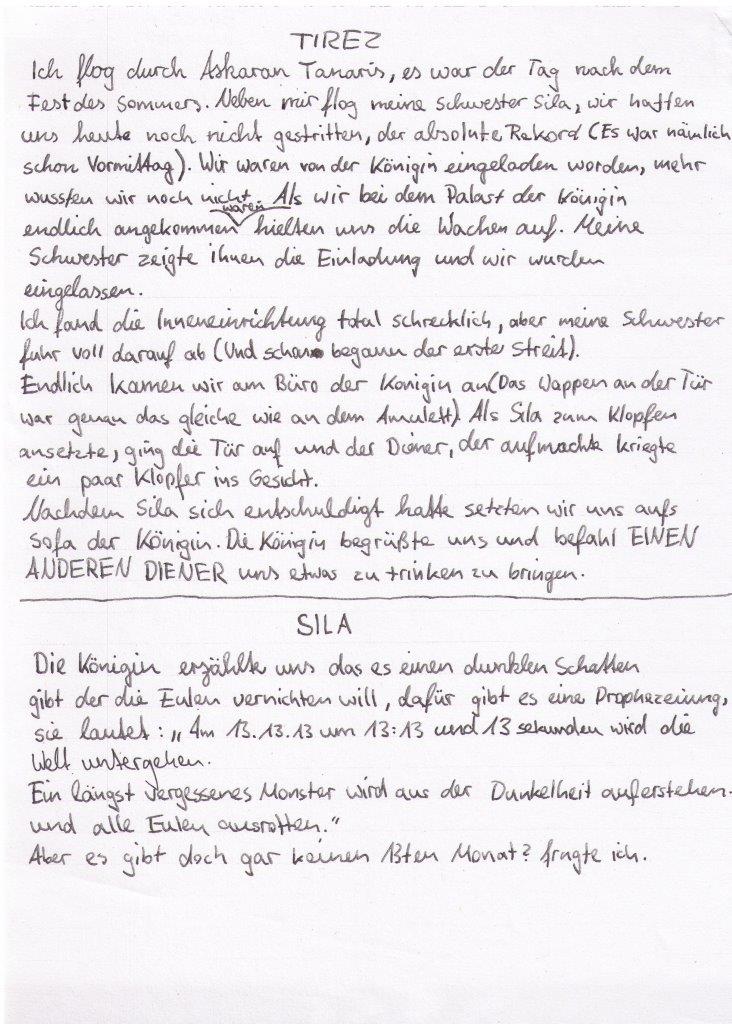 TIREZ
Ich flog durch Askaran Tanaris, es war der Tag nach dem
Fest des Sommers. Neben mir flog meine Schwester Sila, wir hatten
uns heute noch nicht gestritten, der absolute Rekord (Es war nämlich
schon Vormittag). Wir waren von der Königin eingeladen worden, mehr
wussten wir noch nicht. Als wir bei dem Palast der Königin
waren
endlich angekommen hielten uns die Wachen auf. Meine
Schwester zeigte ihnen die Einladung und wir wurden
eingelassen.
Ich fand die Inneneinrichtung total schrecklich, aber meine Schwester
fuhr voll darauf ab (Und schon begann der erste Streit).
Endlich kamen wir am Büro der Königin an (Das Wappen an der Tür
war genau das gleiche wie an dem Amulett). Als Sila zum Klopfen
ansetzte, ging die Tür auf und der Diener, der aufmachte kriegte
ein paar Klopfer ins Gesicht.
Nachdem Sila sich entschuldigt hatte setzten wir uns aufs
Sofa der Königin. Die Königin begrüßte uns und befahl EINEN
ANDEREN DIENER uns etwas zu trinken zu bringen.
SILA
Die Königin erzählte uns das es einen dunklen Schatten
gibt der die Eulen vernichten will, dafür gibt es eine Prophezeiung,
sie lautet: „Am 13.13.13 um 13:13 und 13 sekunden wird die
Welt untergehen.
Ein längst vergessenes Monster wird aus der Dunkelheit auferstehen
und alle Eulen ausrotten."
Aber es gibt doch gar keinen 13ten Monat? fragte ich.